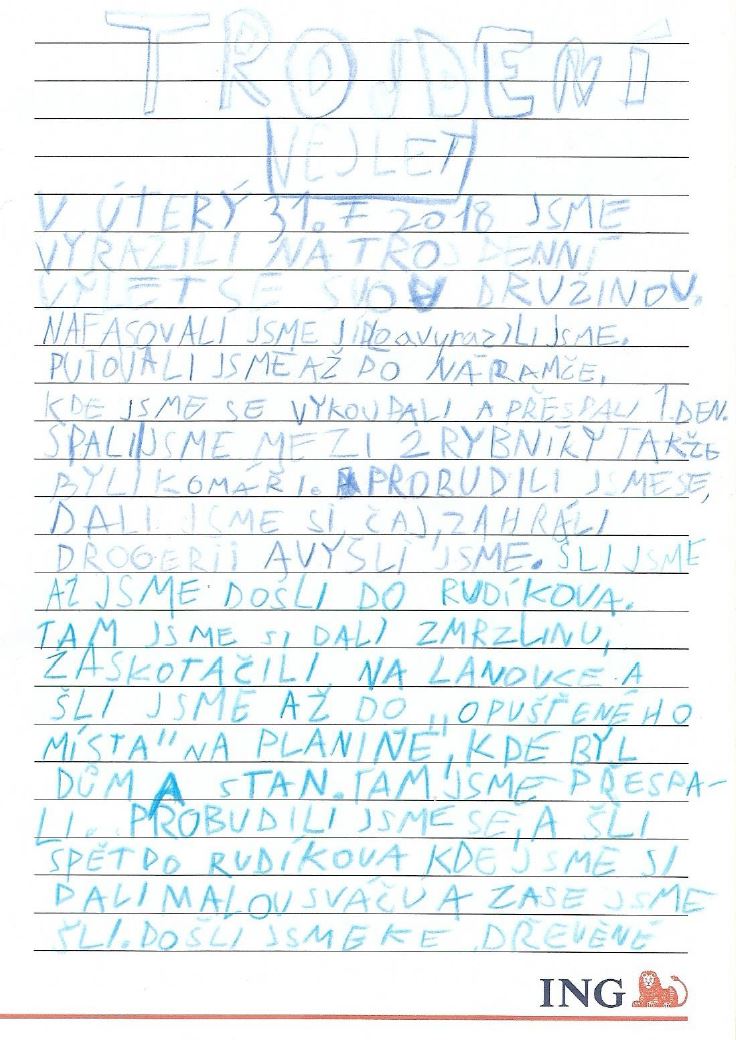 TROJDENÍ
VEJLET
V ÚTERÝ 31. 7 2018 JSME
VYRAZILI NA TROJDENNÍ
VÝLET SE SVOU DRUŽINOU.
NAFASOVALI JSME JÍDLO a vyrazILI JSME.
PUTOVALI JSME AŽ DO NÁRAMČE,
KDE JSME SE VYKOUPALI A PŘESPALI 1. DEN.
SPALI JSME MEZI 2 RYBNÍKY TAKŽE
BYLI KOMÁŘI. PROBUDILI JSME SE,
DALI JSME SI ČAJ, ZAHRÁLI
DROGERII A VYŠLI JSME. ŠLI JSME
AŽ JSME DOŠLI DO RUDÍKOVA.
TAM JSME SI DALI ZMRZLINU,
ZASKOTAČILI NA LANOVCE A
ŠLI JSME AŽ DO „OPUŠTĚNÉHO
MÍSTA" NA PLANINĚ, KDE BYL
DŮM A STAN. TAM JSME PŘESPA-
LI. PROBUDILI JSME SE, A ŠLI
SPĚT DO RUDÍKOVA KDE JSME SI
DALI MALOU SVAČU A ZASE JSME
ŠLI. DOŠLI JSME KE DŘEVĚNÉ
ING